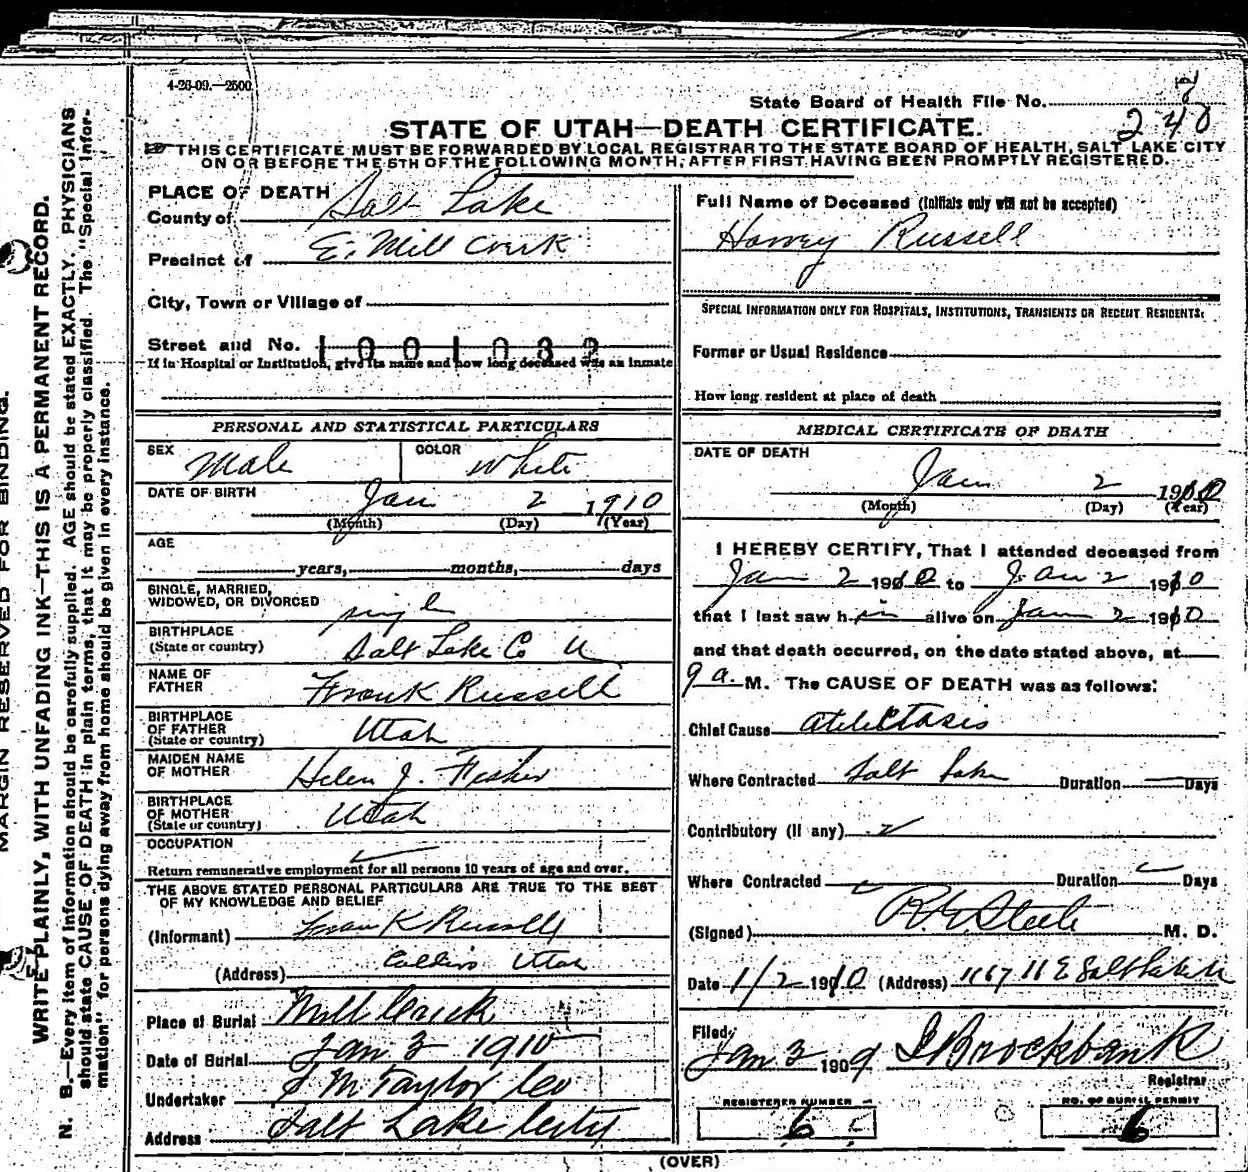 4-26-09.—2500
State Board of Health File No. 7
240
STATE OF UTAH—DEATH CERTIFICATE.
THIS CERTIFICATE MUST BE FORWARDED BY LOCAL REGISTRAR TO THE STATE BOARD OF HEALTH, SALT LAKE CITY
ON OR BEFORE THE 5TH OF THE FOLLOWING MONTH, AFTER FIRST HAVING BEEN PROMPTLY REGISTERED.
PLACE OF DEATH
County of Salt Lake
Precinct of E. Mill Creek
City, Town or Village of
Street and No. 1001032
If in Hospital or Institution, give its name and how long deceased was an inmate
PERSONAL AND STATISTICAL PARTICULARS
SEX Male COLOR White
DATE OF BIRTH Jan 2 1910
(Month) (Day) (Year)
AGE
years, months, days
SINGLE, MARRIED,
WIDOWED, OR DIVORCED single
BIRTHPLACE
(State or country) Salt Lake Co U
NAME OF
FATHER Frank Russell
BIRTHPLACE
OF FATHER
(State or country) Utah
MAIDEN NAME
OF MOTHER Helen J. Fisher
BIRTHPLACE
OF MOTHER
(State or country) Utah
OCCUPATION
Return remunerative employment for all persons 10 years of age and over.
THE ABOVE STATED PERSONAL PARTICULARS ARE TRUE TO THE BEST
OF MY KNOWLEDGE AND BELIEF
(Informant) Frank Russell
(Address) Utah
Place of Burial Mill Creek
Date of Burial Jan 3 1910
Undertaker S M Taylor Co
Address Salt Lake City
Full Name of Deceased (Initials only will not be accepted)
Harvey Russell
SPECIAL INFORMATION ONLY FOR HOSPITALS, INSTITUTIONS, TRANSIENTS OR RECENT RESIDENTS:
Former or Usual Residence
How long resident at place of death
MEDICAL CERTIFICATE OF DEATH
DATE OF DEATH
Jan 2 1910
(Month) (Day) (Year)
I HEREBY CERTIFY, That I attended deceased from
Jan 2 1910 to Jan 2 1910
that I last saw h im alive on Jan 2 1910
and that death occurred, on the date stated above, at
9 a. M. The CAUSE OF DEATH was as follows:
Chief Cause Atelectasis
Where Contracted Salt Lake Duration Days
Contributory (if any)
Where Contracted Duration Days
(Signed) Steele M. D.
Date 1/2 1910 (Address) 1167 11 E Salt Lake U
Filed,
Jan 3 1909 Brockbank
Registrar
REGISTERED NUMBER
6
NO. OF BURIAL PERMIT
6
(OVER)
MARGIN RESERVED FOR BINDING.
WRITE PLAINLY, WITH UNFADING INK—THIS IS A PERMANENT RECORD.
N. B.—Every item of information should be carefully supplied. AGE should be stated EXACTLY. PHYSICIANS
should state CAUSE OF DEATH in plain terms, that it may be properly classified. The "Special Infor-
mation" for persons dying away from home should be given in every instance.